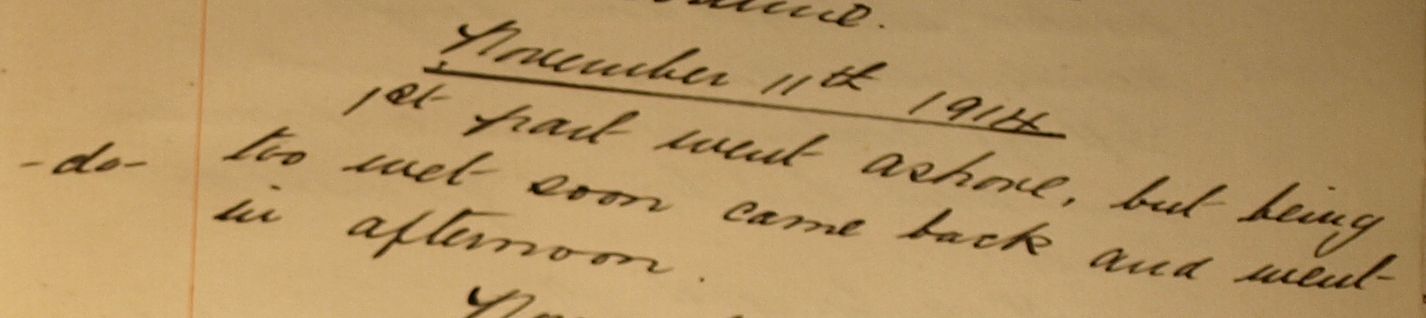 November 11th 1914
1st part went ashore, but being
-do- too wet soon came back and went
in afternoon.